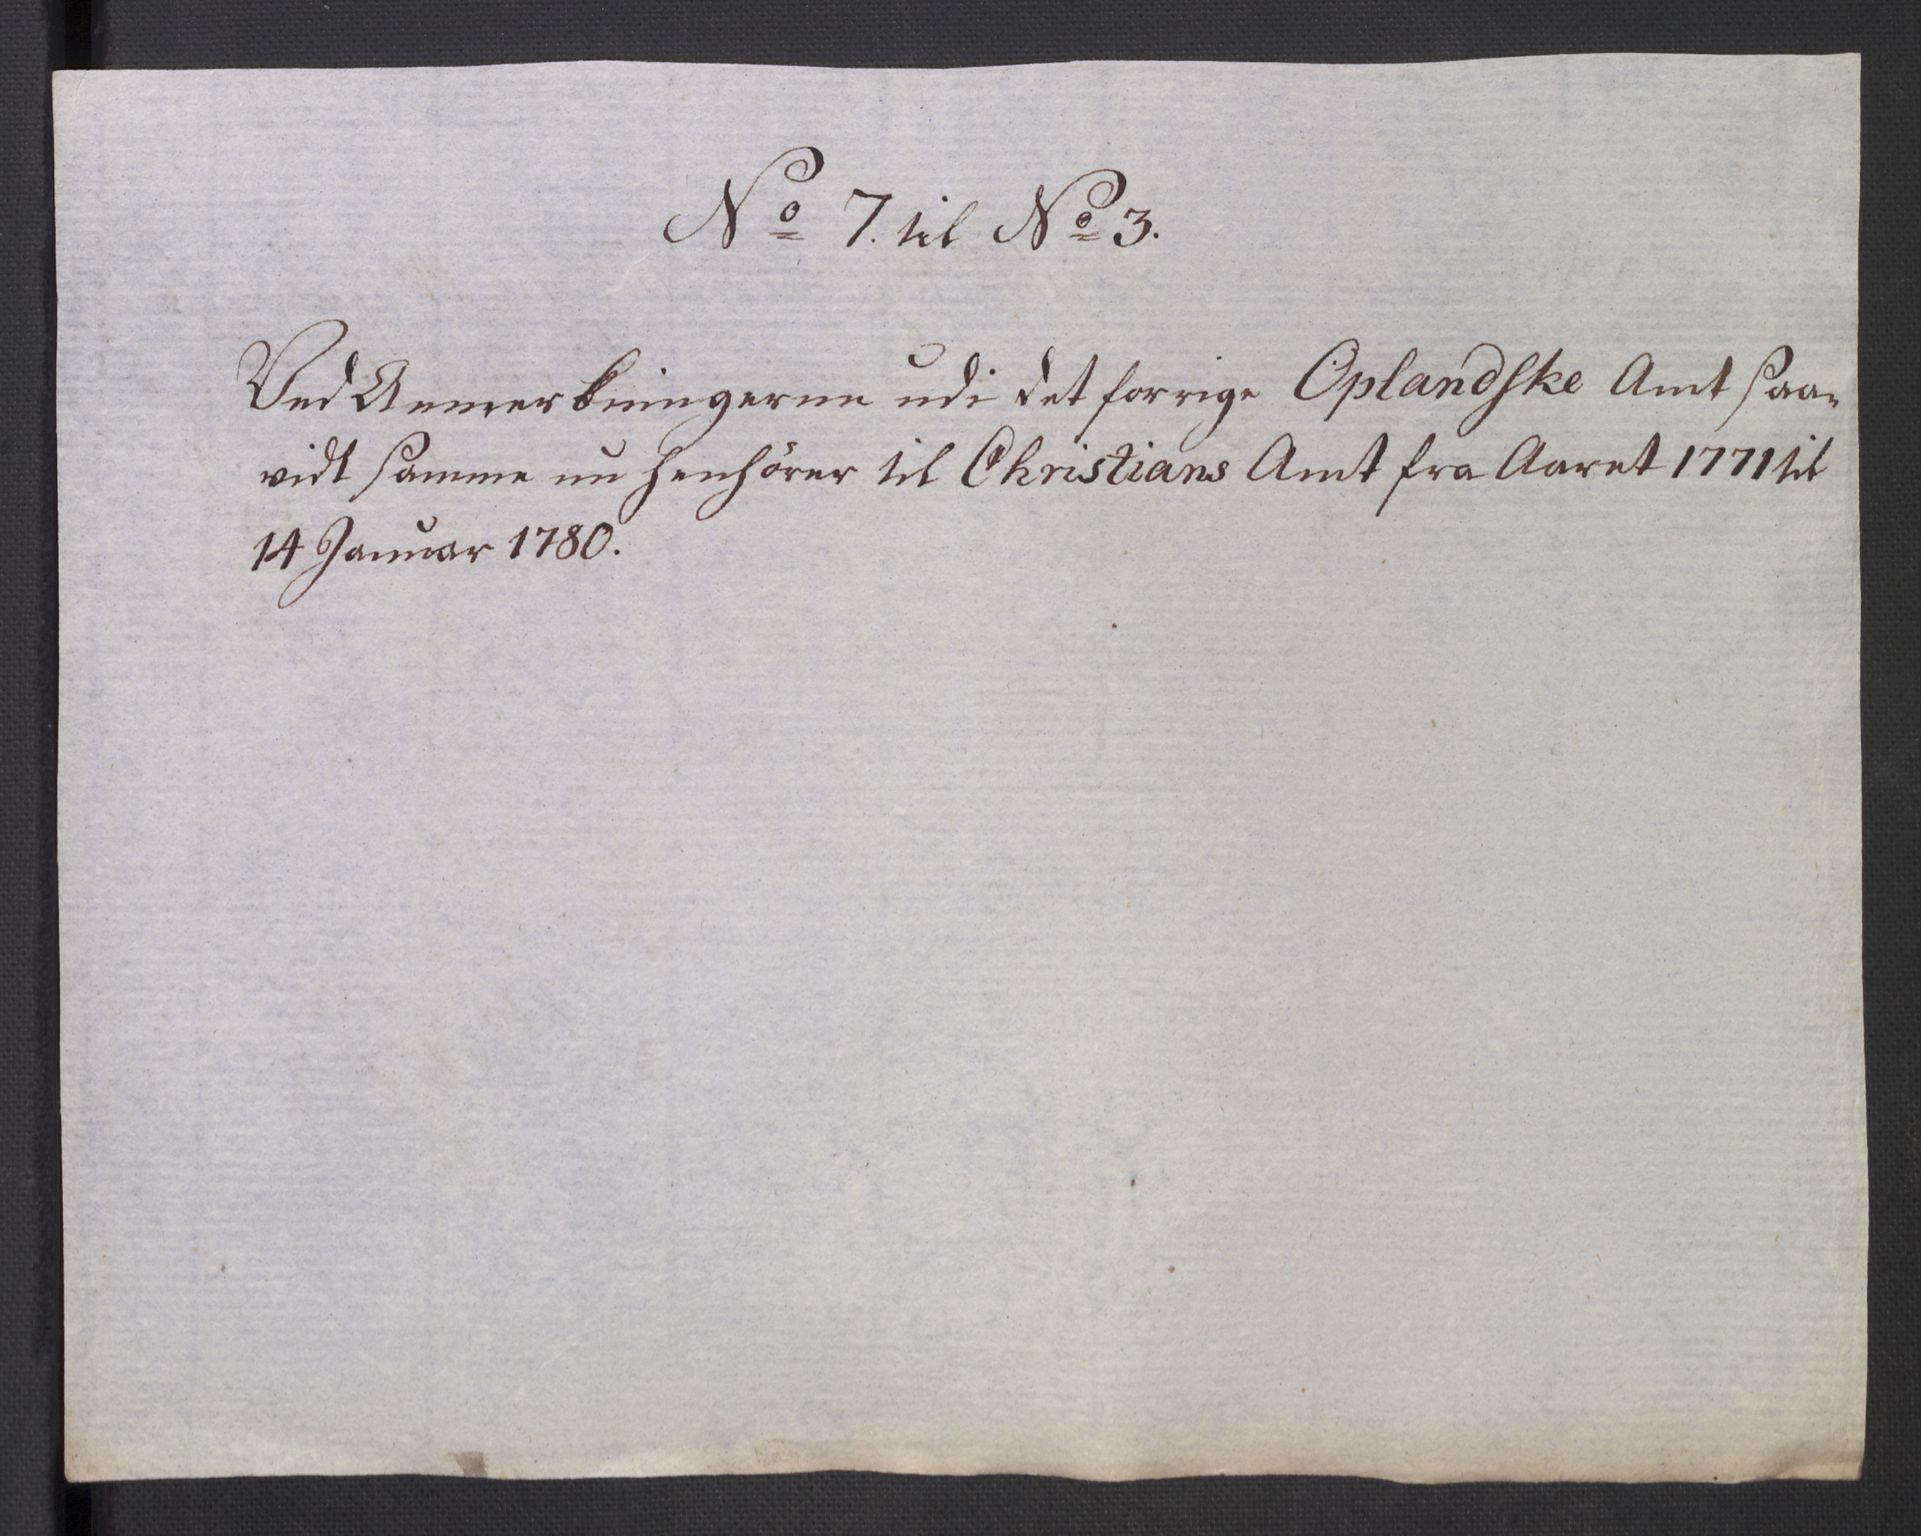 No 7. til No 3.
Ved Anmerkningerne udi det forrige Oplandske Amt saa-
vidt samme nu henhörer til Christians Amt fra Aaret 1771 til
14 Januar 1780.